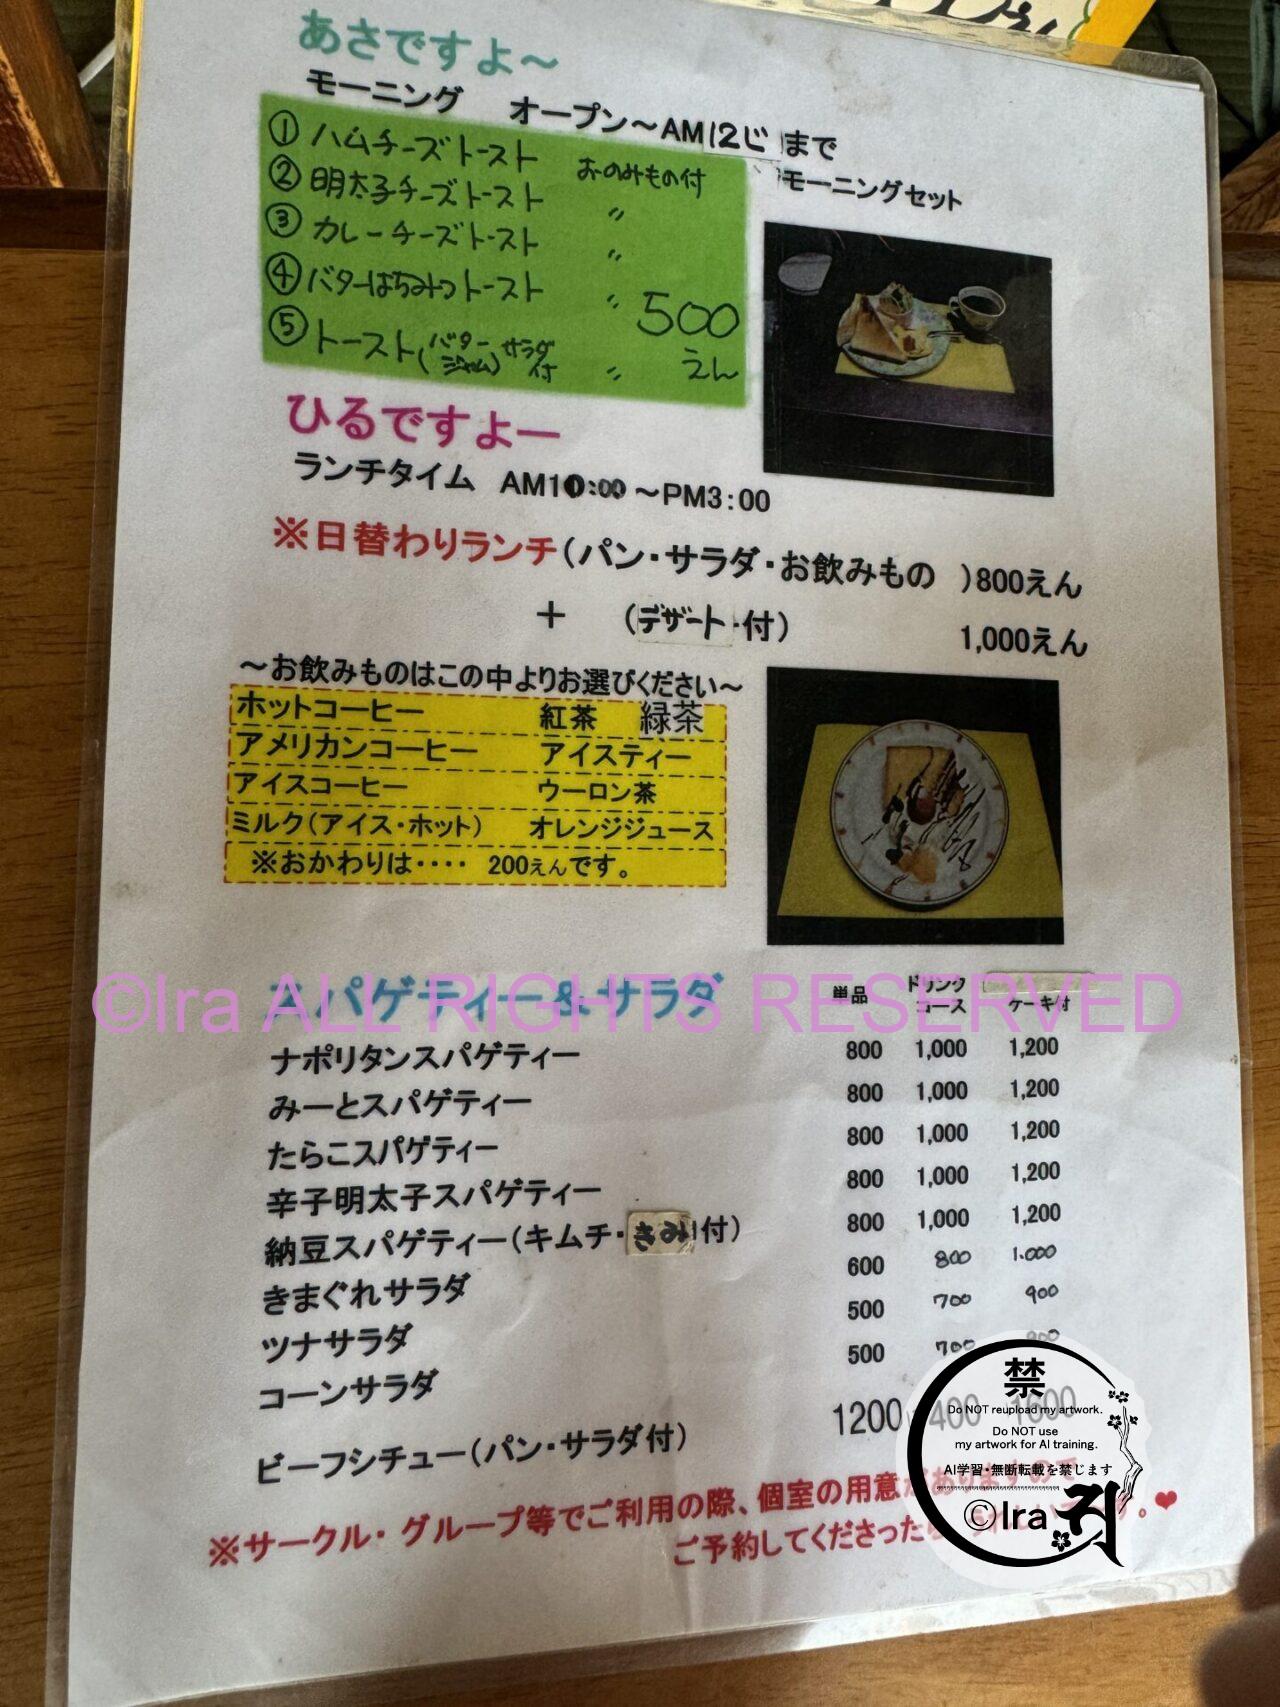 あさですよ～
モーニング オープン～AM12じまで
①ハムチーズトースト おのみもの付
②明太子チーズトースト 〃
③カレーチーズトースト 〃
④バターはちみつトースト 〃
⑤トースト(バター ジャム) サラダ付 〃
500えん
モーニングセット
ひるですよー
ランチタイム AM10:00～PM3:00
※日替わりランチ(パン・サラダ・お飲みもの )800えん
＋ (デザート・付) 1,000えん
～お飲みものはこの中よりお選びください～
ホットコーヒー 紅茶 緑茶
アメリカンコーヒー アイスティー
アイスコーヒー ウーロン茶
ミルク(アイス・ホット) オレンジジュース
※おかわりは・・・・ 200えんです。
スパゲティー＆サラダ 単品 ドリンクコース ケーキ付
©Ira ALL RIGHTS RESERVED
ナポリタンスパゲティー 800 1,000 1,200
みーとスパゲティー 800 1,000 1,200
たらこスパゲティー 800 1,000 1,200
辛子明太子スパゲティー 800 1,000 1,200
納豆スパゲティー(キムチ・きみ付) 800 1,000 1,200
きまぐれサラダ 600 800 1.000
ツナサラダ 500 700 900
コーンサラダ 500 700 900
ビーフシチュー(パン・サラダ付) 1200 1400 1600
※サークル・グループ等でご利用の際、個室の用意がありますので
ご予約してくださったら うれしいです。❤
禁
Do NOT reupload my artwork.
Do NOT use
my artwork for AI training.
AI学習・無断転載を禁じます
©Ira